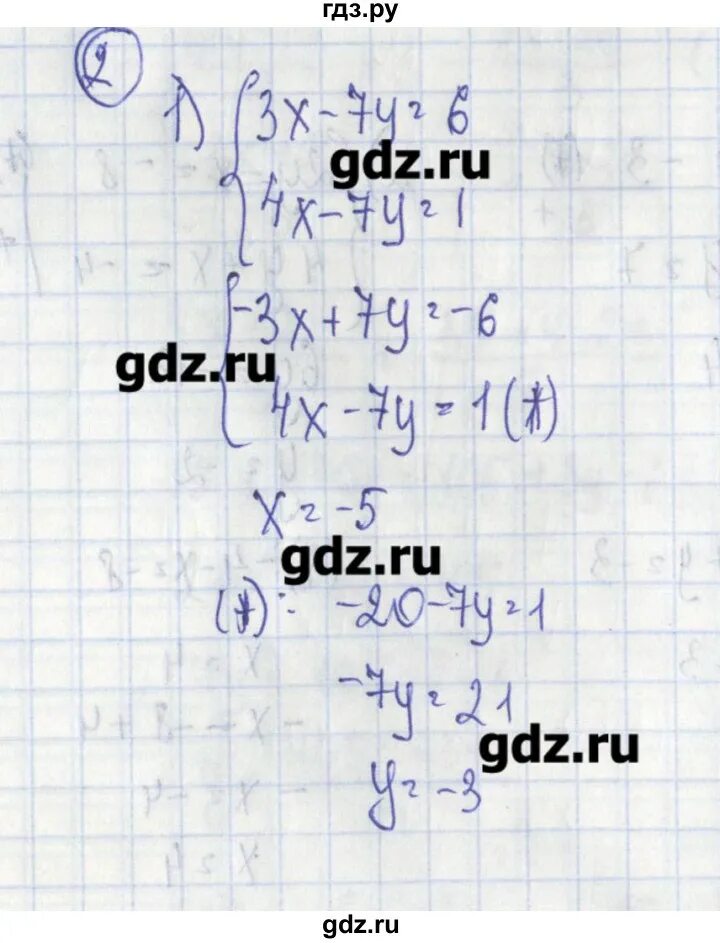 гдз.ру
2
1) 3x-7y=6
gdz.ru
4x-7y=1
-3x+7y=-6
gdz.ru
4x-7y=1(*)
x=-5
gdz.ru
(*): -20-7y=1
-7y=21
gdz.ru
y=-3
gdz.ru